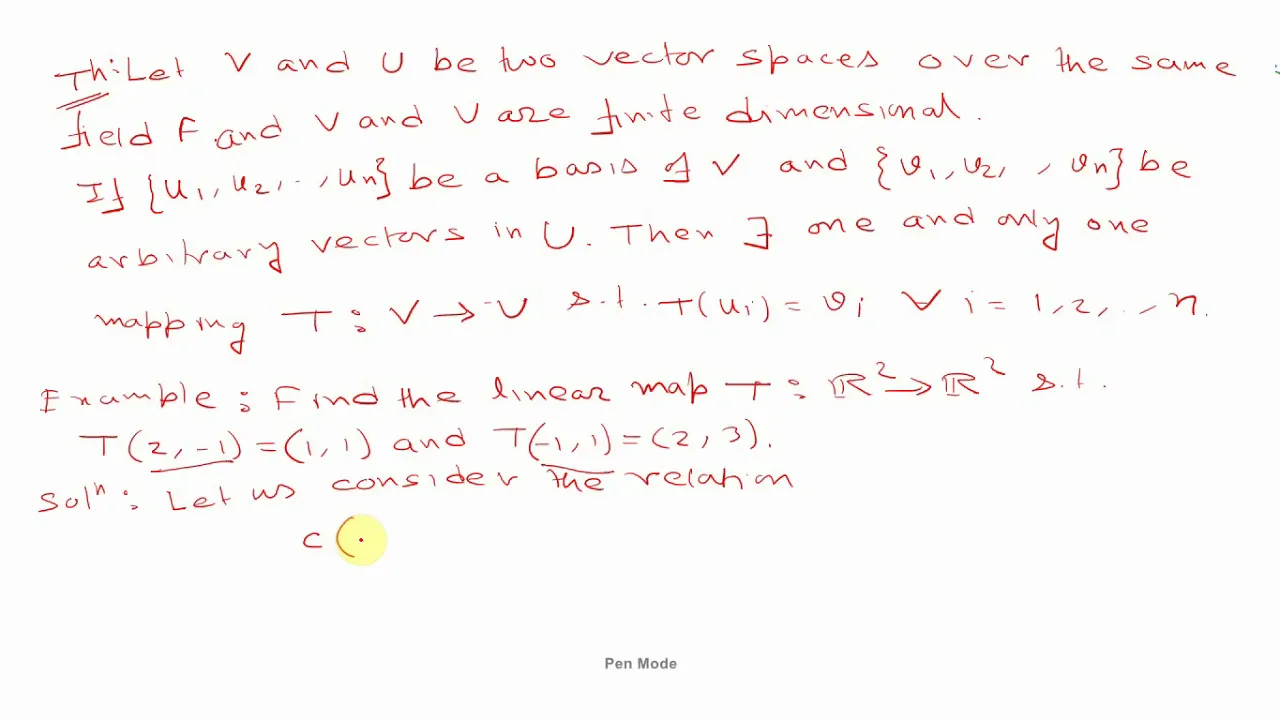 Th: Let V and U be two vector spaces over the same
field F and V and U are finite dimensional.
If {u1, u2, .., un} be a basis of V and {v1, v2, , vn} be
arbitrary vectors in U. Then ∃ one and only one
mapping T : V → U s.t. T(ui) = vi ∀ i = 1, 2, .., n.
Example : Find the linear map T : ℝ² → ℝ² s.t.
T(2, -1) = (1, 1) and T(-1, 1) = (2, 3).
Solⁿ : Let us consider the relation
c (
Pen Mode